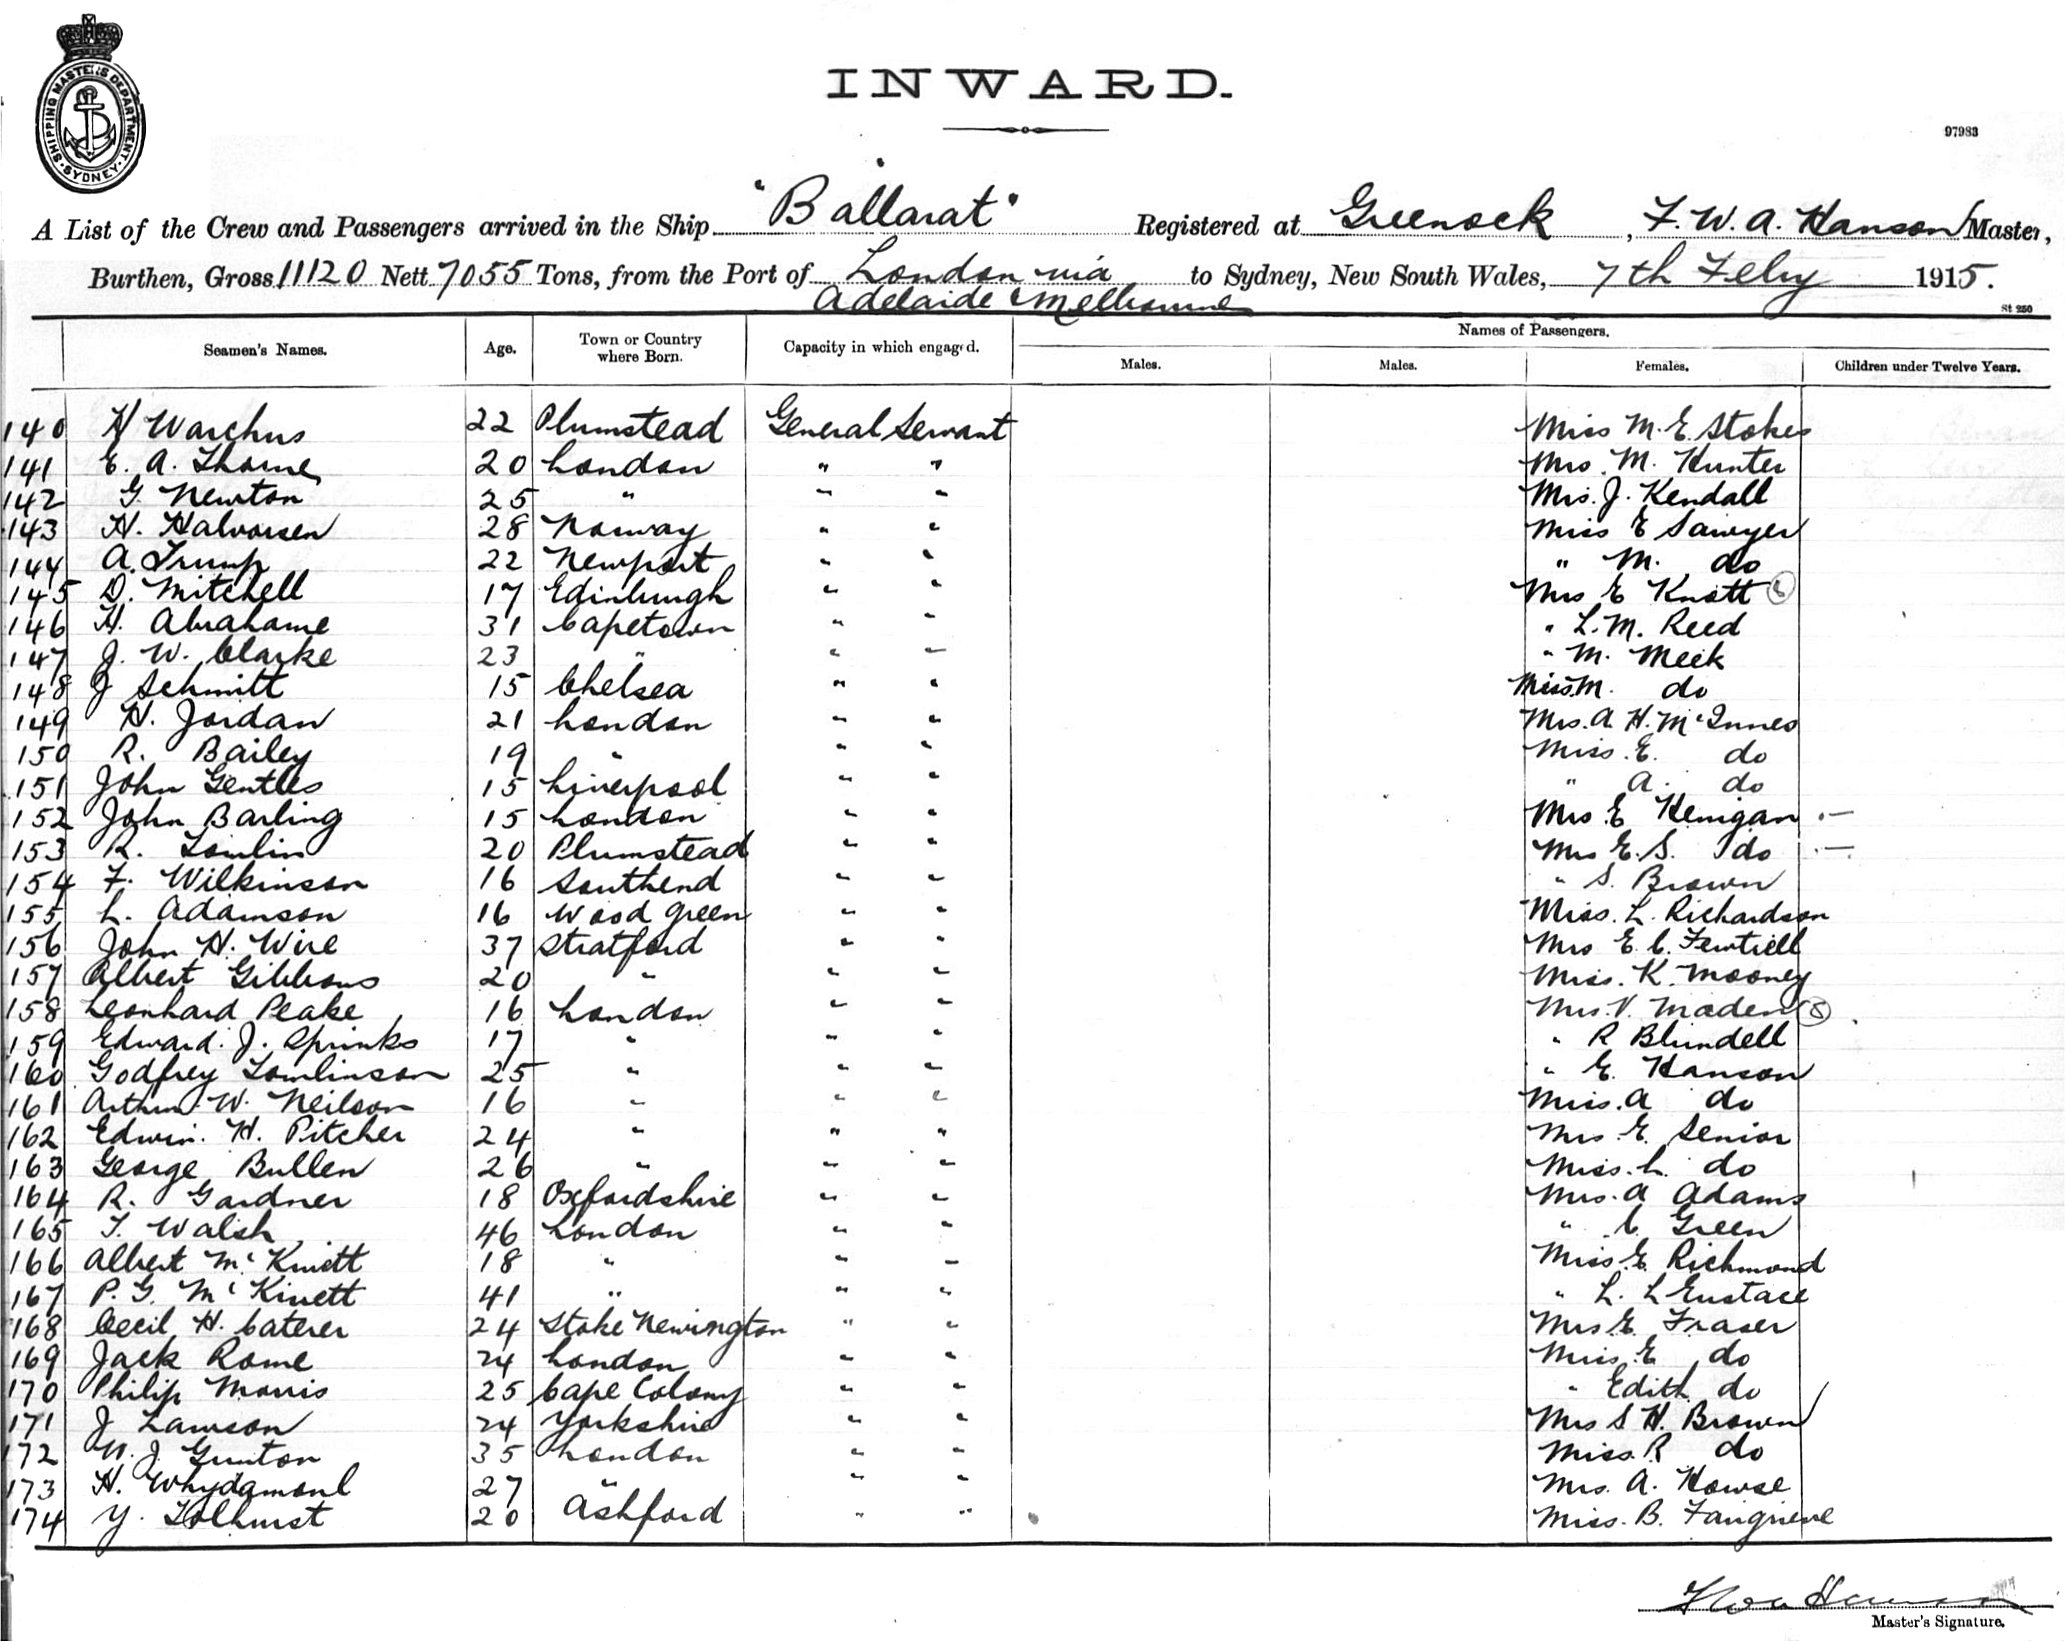 SHIPPING MASTERS DEPARTMENT SYDNEY
INWARD.
97983
A List of the Crew and Passengers arrived in the Ship "Ballarat" Registered at Greenock, F. W. A. Hanson Master,
Burthen, Gross 11120 Nett 7055 Tons, from the Port of London via to Sydney, New South Wales, 7th Feby 1915.
Adelaide & Melbourne
St 250
Names of Passengers.
Seamen's Names. Age. Town or Country where Born. Capacity in which engaged. Males. Males. Females. Children under Twelve Years.
140 H Warchus 22 Plumstead General Servant Miss M. E. Stokes
141 E. A. Thorne 20 London " " Mrs. M. Hunter
142 G. Newton 25 " " " Mrs. J. Kendall
143 H. Halvorsen 28 Norway " " Miss E Sawyer
144 A. Trump 22 Newport " " " M. do
145 D. Mitchell 17 Edinburgh " " Mrs E Knott
146 H. Abrahame 31 Capetown " " " L. M. Reed
147 J. W. Clarke 23 " " " " M. Meek
148 J Schmitt 15 Chelsea " " Miss M. do
149 H. Jordan 21 London " " Mrs. A H. McInnes
150 R. Bailey 19 " " " Miss. E. do
151 John Gentles 15 Liverpool " " " A. do
152 John Barling 15 London " " Mrs E Henigan
153 R. Tomlin 20 Plumstead " " Mrs E. S. do
154 F. Wilkinson 16 Southend " " " S. Brown
155 L. Adamson 16 Wood Green " " Miss. L. Richardson
156 John H. Wire 37 Stratford " " Mrs E. C. Fewtrell
157 Albert Gibbons 20 " " " Miss. K. Mooney
158 Leonhard Peake 16 London " " Mrs. V. Maden
159 Edward. J. Sprinks 17 " " " " R Blundell
160 Godfrey Tomlinson 25 " " " " E. Hanson
161 Arthur W. Neilson 16 " " " Miss. A do
162 Edwin. H. Pitcher 24 " " " Mrs. E. Senior
163 George Bullen 26 " " " Miss. L. do
164 R. Gardner 18 Oxfordshire " " Mrs. A Adams
165 T. Walsh 46 London " " " C. Green
166 Albert McKivett 18 " " " Miss E Richmond
167 P. G. McKivett 41 " " " " L. L Eustace
168 Cecil H. Caterer 24 Stoke Newington " " Mrs E Fraser
169 Jack Rome 24 London " " Miss. E do
170 Philip Morris 25 Cape Colony " " " Edith do
171 J Lawson 24 Yorkshire " " Mrs S H. Brown
172 W. J. Gunton 35 London " " Miss. R do
173 H. Whydamonl 27 " " " Mrs. A. Howse
174 Y. Tolhurst 20 Ashford " " Miss. B. Fairgrieve
Master's Signature.